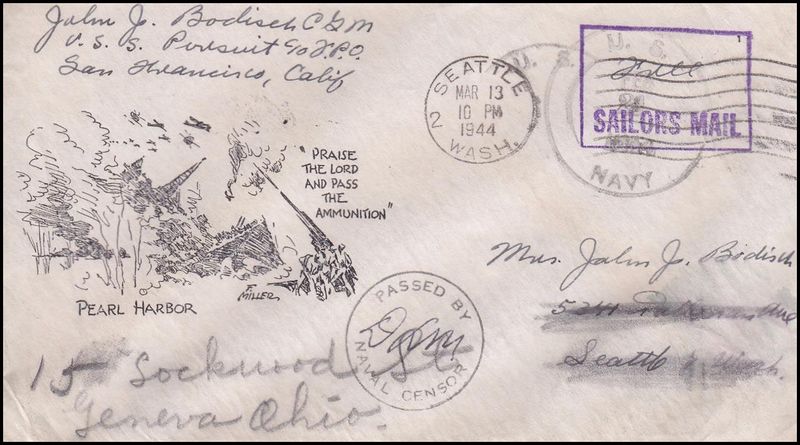 John J. Bodisch CGM
U.S.S. Pursuit c/o F.P.O.
San Francisco, Calif
SEATTLE
MAR 13
10 PM
1944
2 WASH.
U. S.
NAVY
U. S.
1
Free
SAILORS MAIL
"PRAISE
THE LORD
AND PASS
THE
AMMUNITION"
F. MILLER
PEARL HARBOR
PASSED BY
NAVAL CENSOR
Mrs. John J. Bodisch
Ave
Seattle, Wash.
15 Lockwood St
Geneva Ohio.